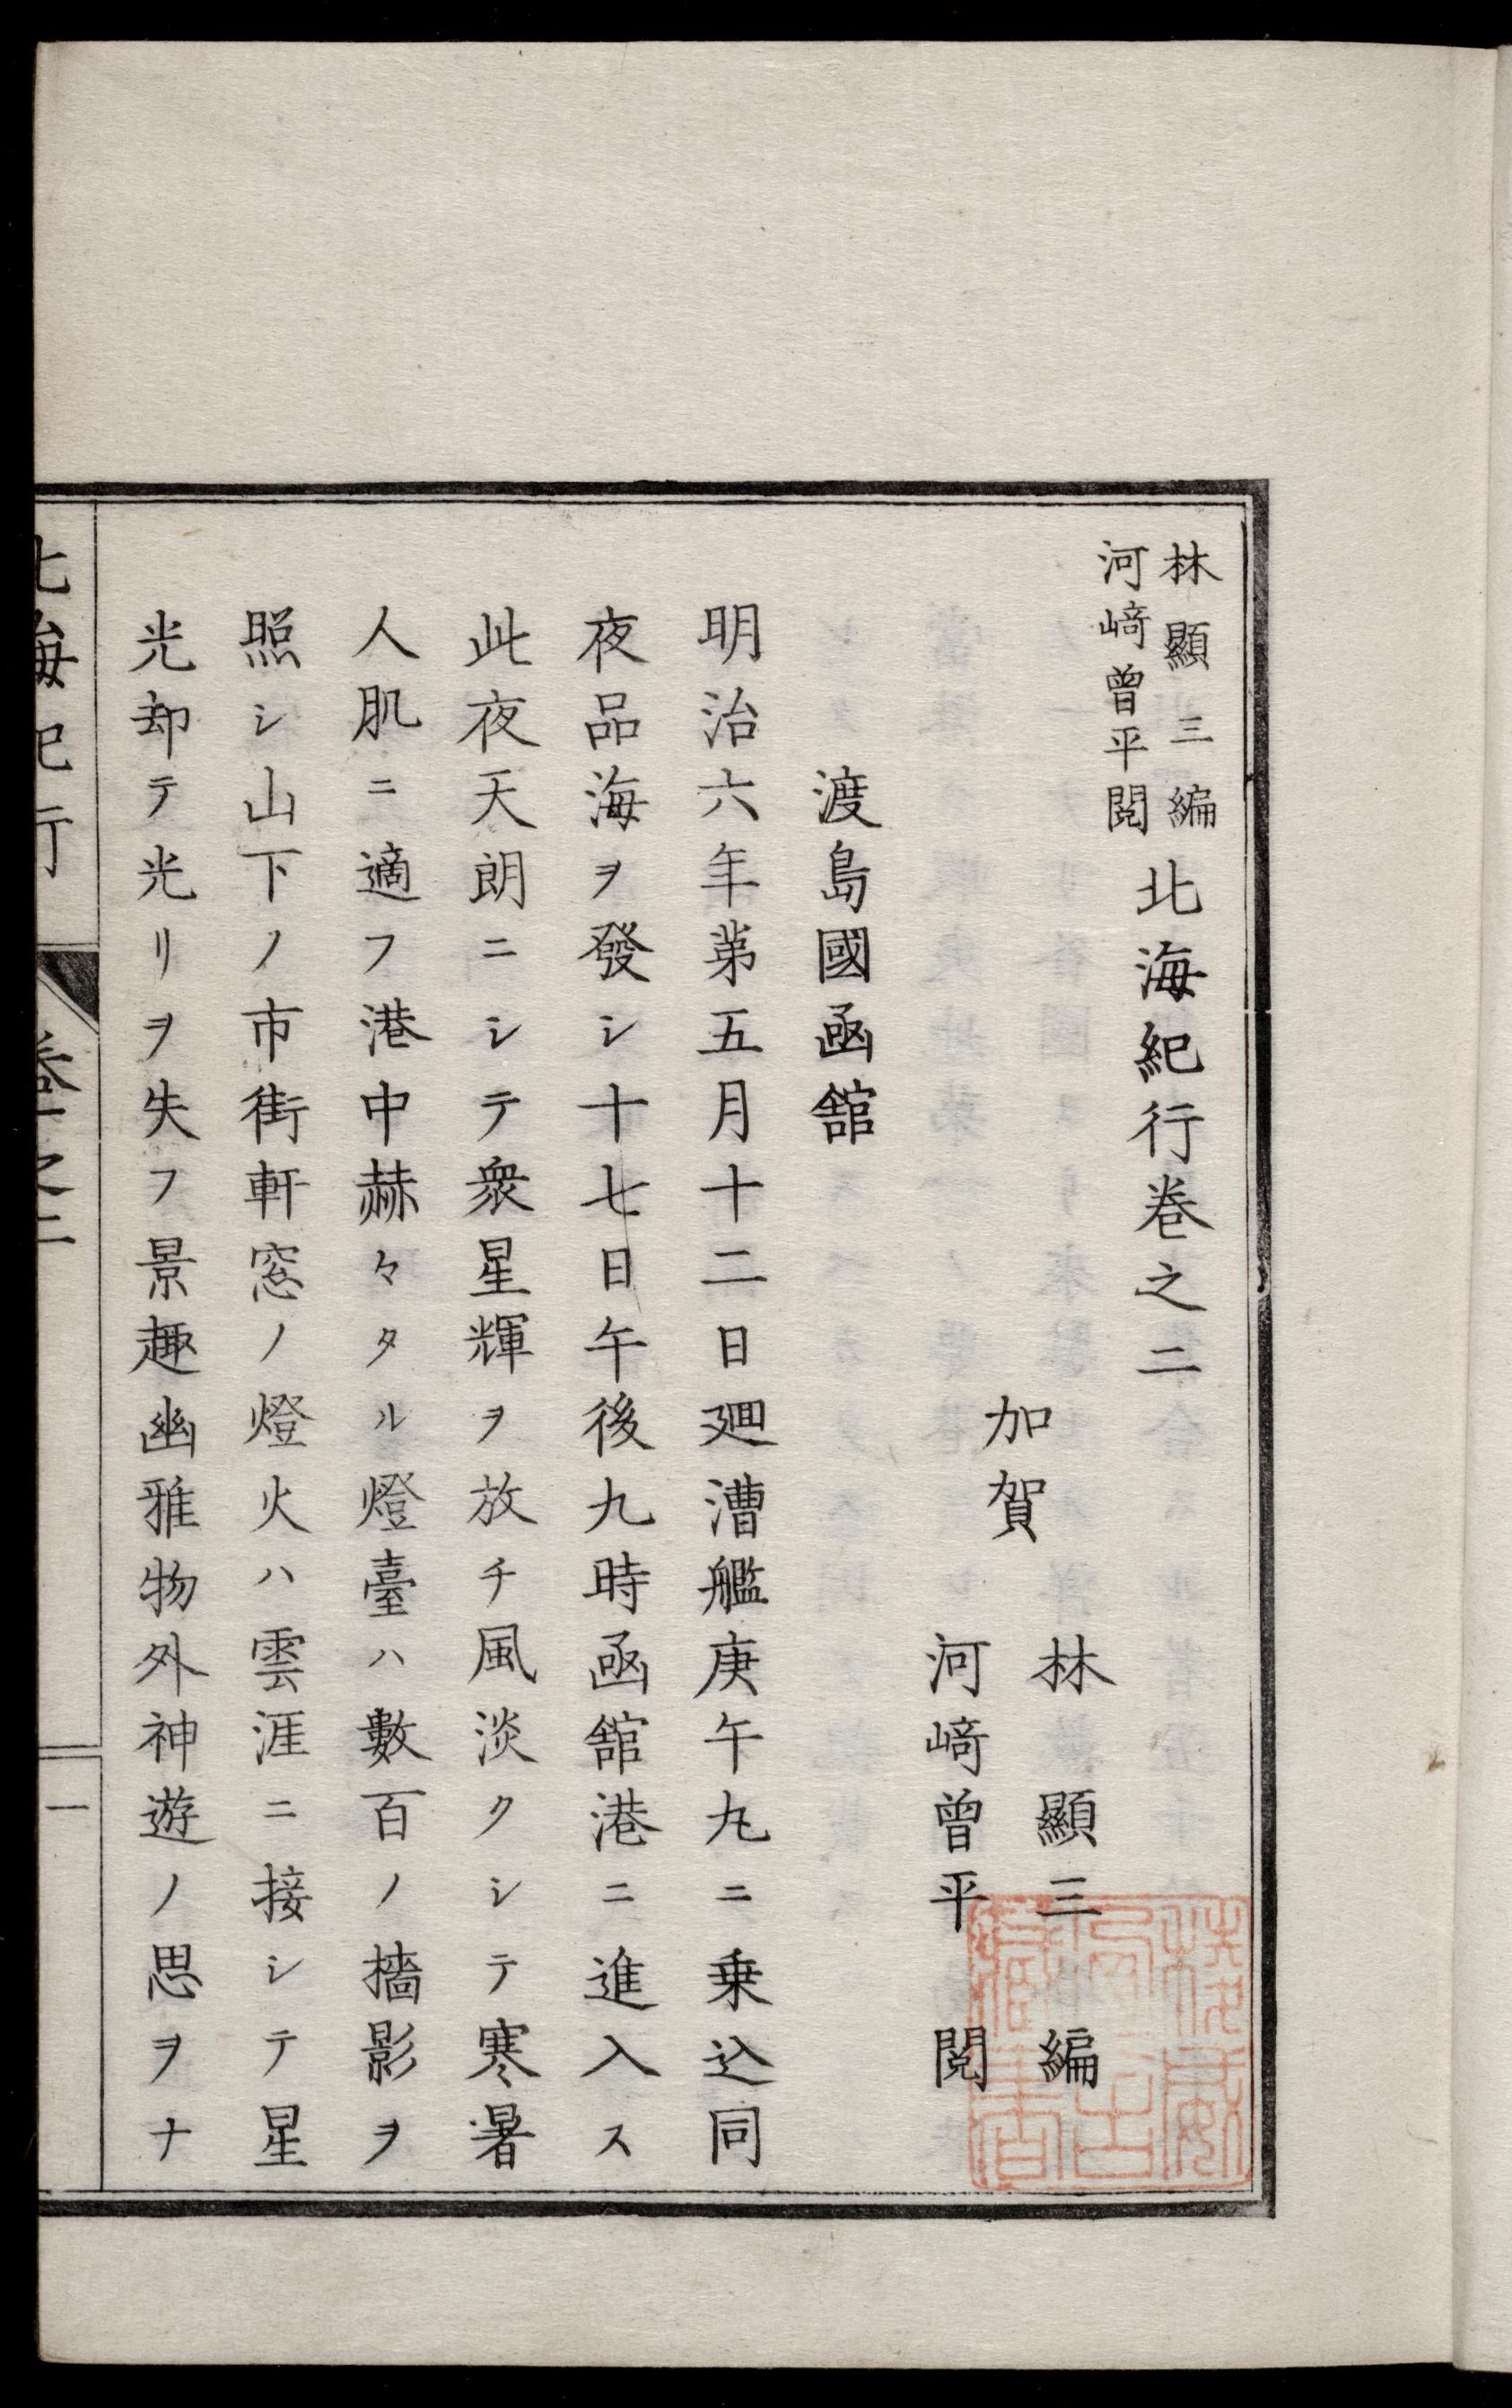 林顯三編
河﨑曾平閲
北海紀行卷之二
加賀
林顯三編
河﨑曾平閲
渡島國函舘
明治六年苐五月十二日廻漕艦庚午丸ニ乗込同
夜品海ヲ發シ十七日午後九時函舘港ニ進入ス
此夜天朗ニシテ衆星輝ヲ放チ風淡クシテ寒暑
人肌ニ適フ港中赫々タル燈臺ハ數百ノ檣影ヲ
照シ山下ノ市街軒窓ノ燈火ハ雲涯ニ接シテ星
光却テ光リヲ失フ景趣幽雅物外神遊ノ思ヲナ
北海紀行
卷之二
一